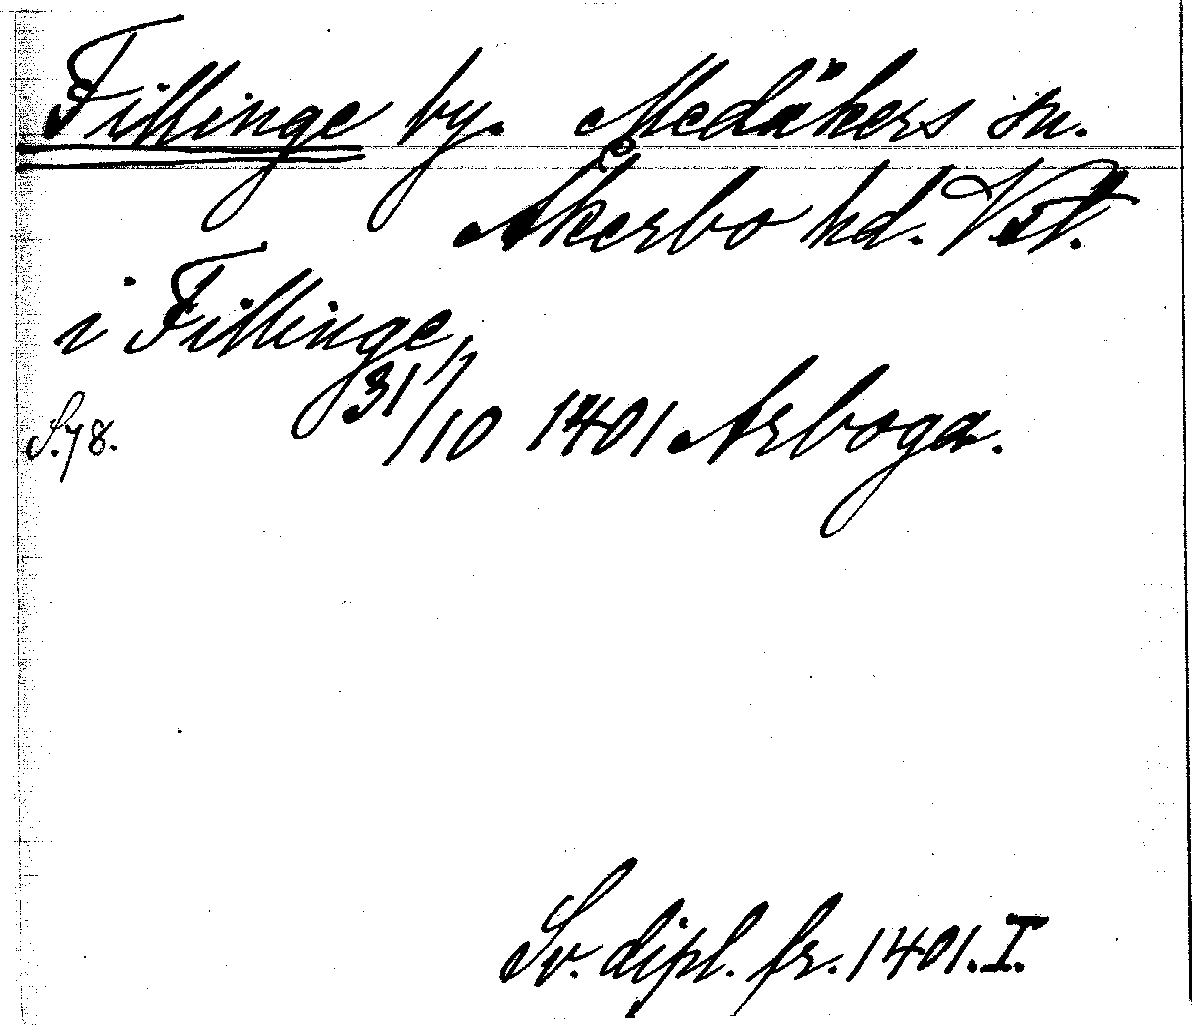 Fillinge by. Medåkers sn.
Åkerbo hd. Vstl.
i Fillinge
S. 78. 31/10 1401 Arboga.
Sv. dipl. fr. 1401. I.